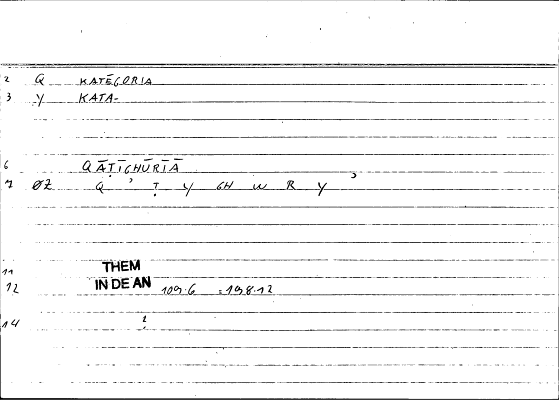 2 Q KATĒGORIA
3 Y KATA-
6 QĀṬĪGHŪRIĀ
7 ØZ Q ʾ Ṭ Y GH W R Y ʾ
11 THEM
12 IN DE AN 109.6 = 198.12
14